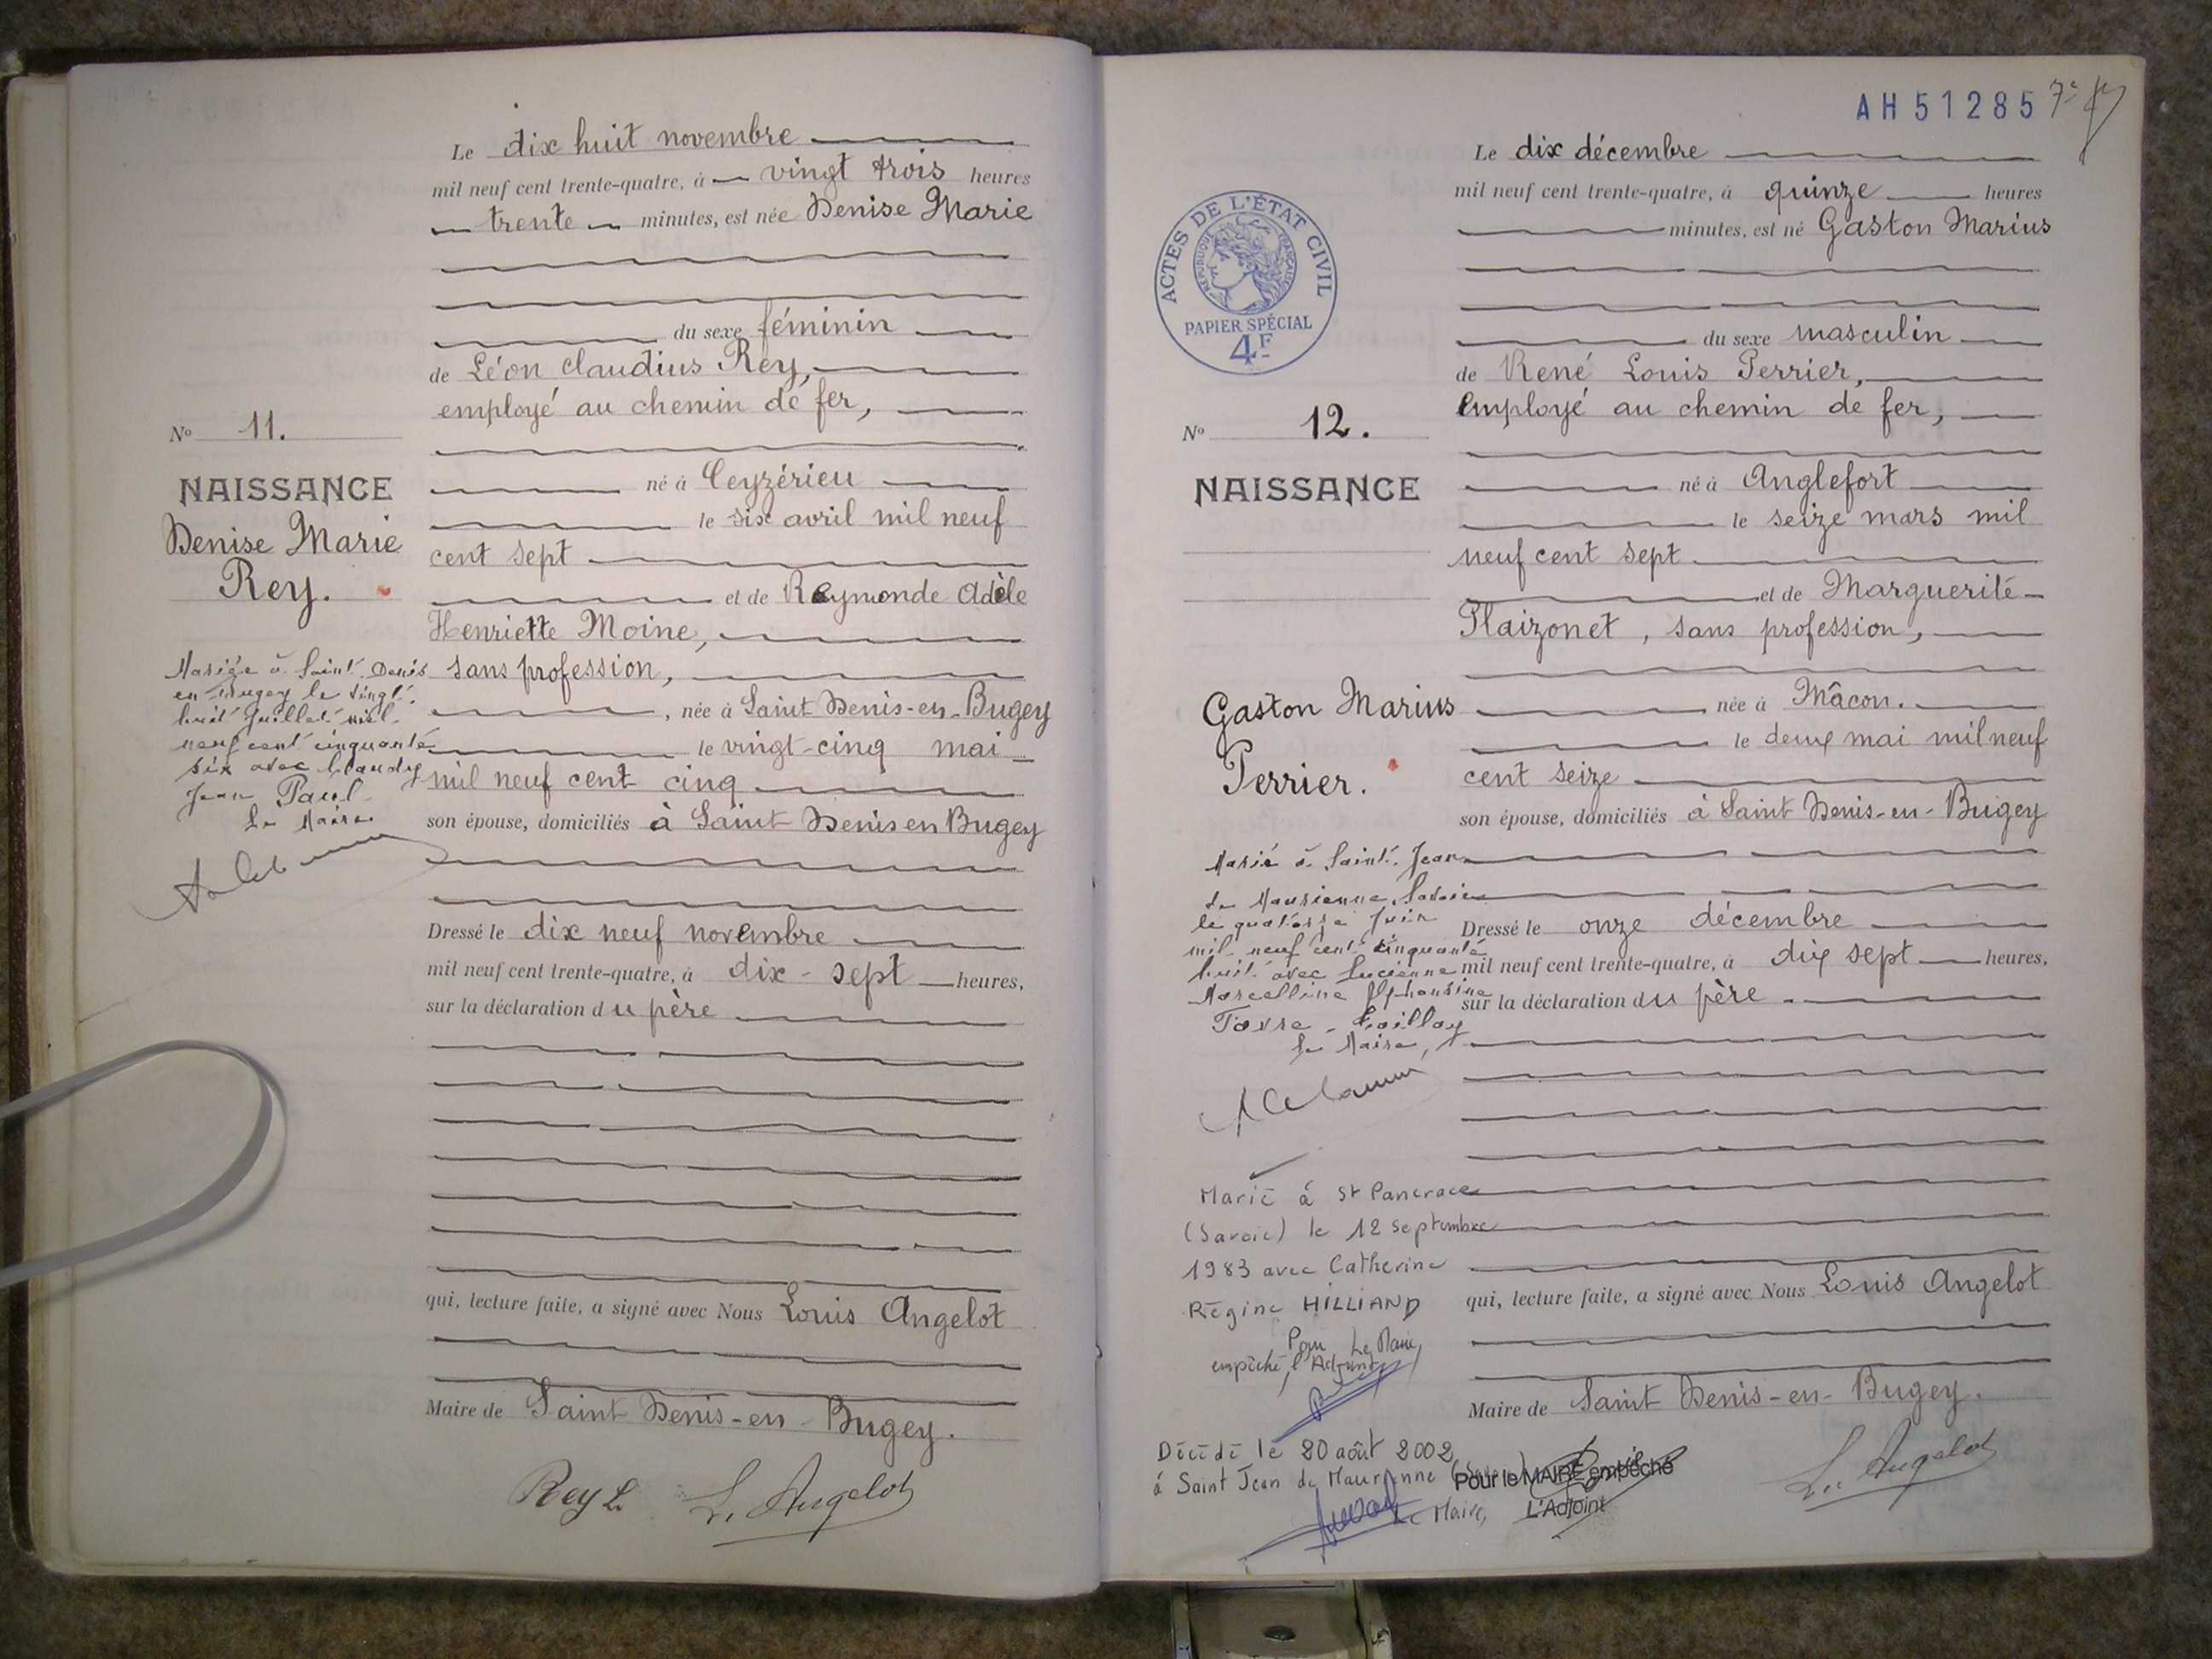 Le dix huit novembre
mil neuf cent trente-quatre, à vingt trois heures
trente minutes, est née Denise Marie
du sexe féminin
de Léon Claudius Rey,
employé au chemin de fer,
né à Ceyzérieu
le six avril mil neuf
cent sept
et de Raymonde Adèle
Henriette Moine,
sans profession,
, née à Saint Denis-en-Bugey
le vingt-cinq mai
mil neuf cent cinq
son épouse, domiciliés à Saint Denis en Bugey
Dressé le dix neuf novembre
mil neuf cent trente-quatre, à dix-sept heures,
sur la déclaration du père
qui, lecture faite, a signé avec Nous Louis Angelot
Maire de Saint Denis-en-Bugey.
Rey L. L. Angelot
No 11.
NAISSANCE
Denise Marie
Rey.
Mariée à Saint Denis
en Bugey le vingt
huit Juillet mil
neuf cent cinquante
six avec Claudy
Jean Paul
Le Maire
AH 51285 7e
ACTES DE L'ÉTAT CIVIL
RÉPUBLIQUE FRANÇAISE
PAPIER SPÉCIAL
4F
Le dix décembre
mil neuf cent trente-quatre, à quinze heures
minutes, est né Gaston Marius
du sexe masculin
de René Louis Perrier,
employé au chemin de fer,
né à Anglefort
le seize mars mil
neuf cent sept
et de Marguerite
Plaizonet, sans profession,
née à Mâcon.
le deux mai mil neuf
cent seize
son épouse, domiciliés à Saint Denis-en-Bugey
Dressé le onze décembre
mil neuf cent trente-quatre, à dix sept heures,
sur la déclaration du père.
qui, lecture faite, a signé avec Nous Louis Angelot
Maire de Saint Denis-en-Bugey.
L. Angelot
No 12.
NAISSANCE
Gaston Marius
Perrier.
Marié à Saint Jean
de Maurienne, Savoie
le quatorze Juin
mil neuf cent cinquante
huit avec Lucienne
Marcelline Alphonsine
Favre
Le Maire,
Marié à St Pancrace
(Savoie) le 12 septembre
1983 avec Catherine
Régine HILLIAND
Pour Le Maire
empêché, l'Adjoint
Décédé le 20 août 2002
à Saint Jean de Maurienne (Savoie)
Le Maire,
Pour le MAIRE empêché
L'Adjoint